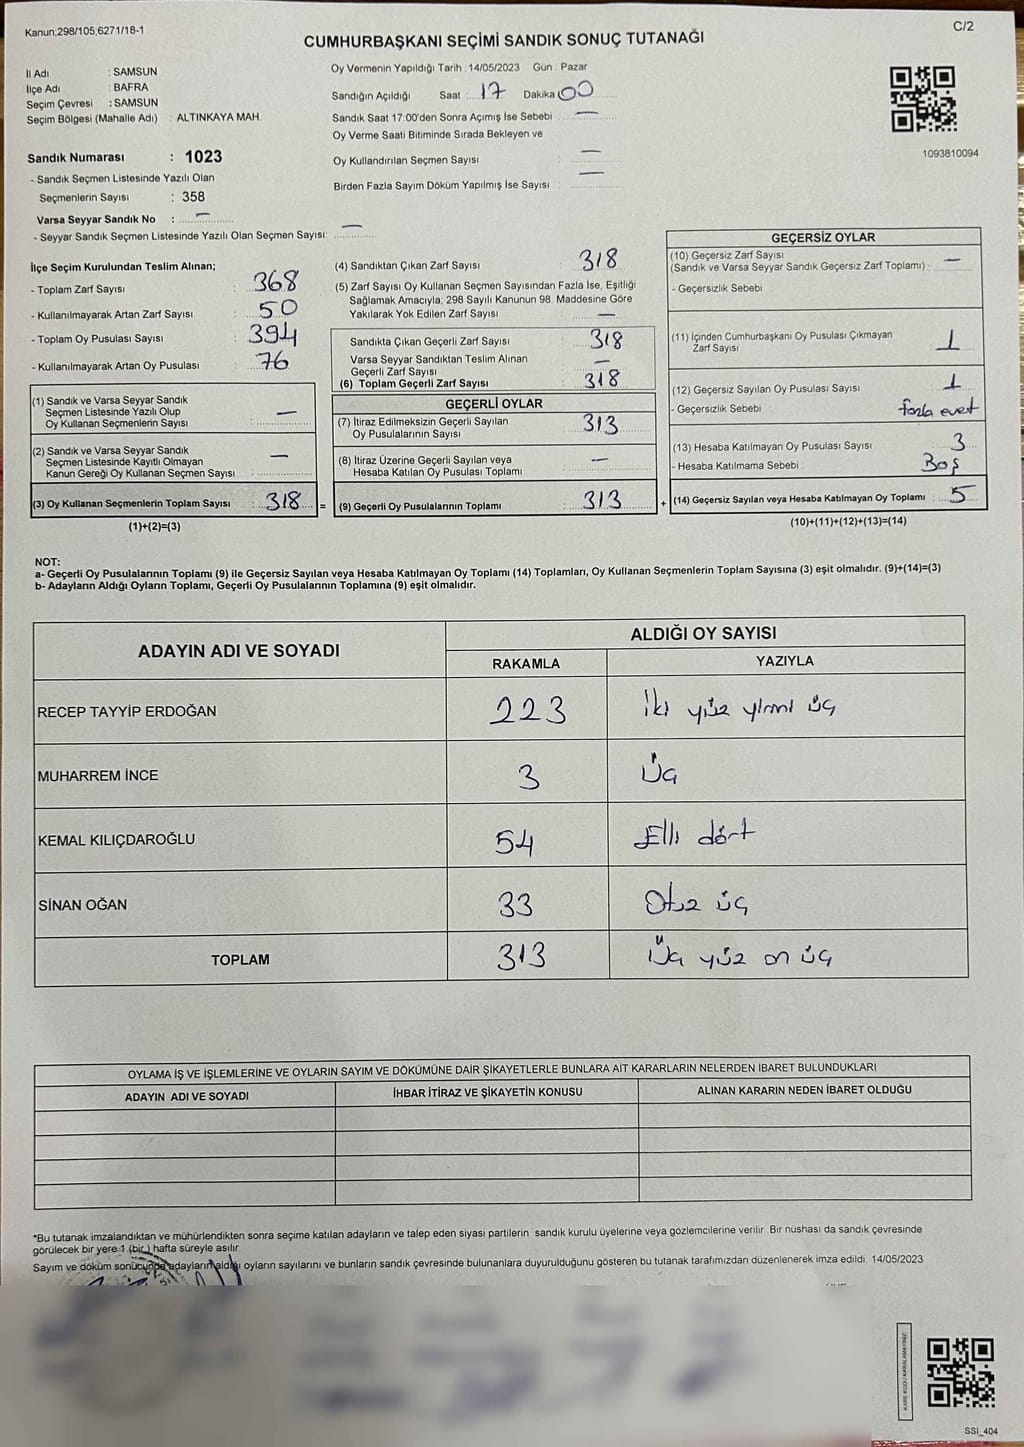 Kanun;298/105;6271/18-1
C/2
CUMHURBAŞKANI SEÇİMİ SANDIK SONUÇ TUTANAĞI
İl Adı : SAMSUN
İlçe Adı : BAFRA
Seçim Çevresi : SAMSUN
Seçim Bölgesi (Mahalle Adı) : ALTINKAYA MAH.
Sandık Numarası : 1023
- Sandık Seçmen Listesinde Yazılı Olan
Seçmenlerin Sayısı : 358
Varsa Seyyar Sandık No : —
- Seyyar Sandık Seçmen Listesinde Yazılı Olan Seçmen Sayısı: —
Oy Vermenin Yapıldığı Tarih : 14/05/2023 Gün : Pazar
Sandığın Açıldığı Saat : 17 Dakika 00
Sandık Saat 17:00'den Sonra Açımış İse Sebebi : —
Oy Verme Saati Bitiminde Sırada Bekleyen ve
Oy Kullandırılan Seçmen Sayısı : —
Birden Fazla Sayım Döküm Yapılmış İse Sayısı : —
1093810094
İlçe Seçim Kurulundan Teslim Alınan;
- Toplam Zarf Sayısı : 368
- Kullanılmayarak Artan Zarf Sayısı : 50
- Toplam Oy Pusulası Sayısı : 394
- Kullanılmayarak Artan Oy Pusulası : 76
(1) Sandık ve Varsa Seyyar Sandık
Seçmen Listesinde Yazılı Olup
Oy Kullanan Seçmenlerin Sayısı : —
(2) Sandık ve Varsa Seyyar Sandık
Seçmen Listesinde Kayıtlı Olmayan
Kanun Gereği Oy Kullanan Seçmen Sayısı : —
(3) Oy Kullanan Seçmenlerin Toplam Sayısı : 318 =
(1)+(2)=(3)
(4) Sandıktan Çıkan Zarf Sayısı : 318
(5) Zarf Sayısı Oy Kullanan Seçmen Sayısından Fazla İse, Eşitliği
Sağlamak Amacıyla; 298 Sayılı Kanunun 98. Maddesine Göre
Yakılarak Yok Edilen Zarf Sayısı : —
Sandıkta Çıkan Geçerli Zarf Sayısı : 318
Varsa Seyyar Sandıktan Teslim Alınan
Geçerli Zarf Sayısı : —
(6) Toplam Geçerli Zarf Sayısı : 318
GEÇERLİ OYLAR
(7) İtiraz Edilmeksizin Geçerli Sayılan
Oy Pusulalarının Sayısı : 313
(8) İtiraz Üzerine Geçerli Sayılan veya
Hesaba Katılan Oy Pusulası Toplamı : —
(9) Geçerli Oy Pusulalarının Toplamı : 313 +
GEÇERSİZ OYLAR
(10) Geçersiz Zarf Sayısı
(Sandık ve Varsa Seyyar Sandık Geçersiz Zarf Toplamı) : —
- Geçersizlik Sebebi :
(11) İçinden Cumhurbaşkanı Oy Pusulası Çıkmayan
Zarf Sayısı : 1
(12) Geçersiz Sayılan Oy Pusulası Sayısı : 1
- Geçersizlik Sebebi : fazla evet
(13) Hesaba Katılmayan Oy Pusulası Sayısı : 3
- Hesaba Katılmama Sebebi : Boş
(14) Geçersiz Sayılan veya Hesaba Katılmayan Oy Toplamı : 5
(10)+(11)+(12)+(13)=(14)
NOT:
a- Geçerli Oy Pusulalarının Toplamı (9) ile Geçersiz Sayılan veya Hesaba Katılmayan Oy Toplamı (14) Toplamları, Oy Kullanan Seçmenlerin Toplam Sayısına (3) eşit olmalıdır. (9)+(14)=(3)
b- Adayların Aldığı Oyların Toplamı, Geçerli Oy Pusulalarının Toplamına (9) eşit olmalıdır.
ADAYIN ADI VE SOYADI ALDIĞI OY SAYISI
RAKAMLA YAZIYLA
RECEP TAYYİP ERDOĞAN 223 İki yüz yirmi üç
MUHARREM İNCE 3 Üç
KEMAL KILIÇDAROĞLU 54 Elli dört
SİNAN OĞAN 33 Otuz üç
TOPLAM 313 Üç yüz on üç
OYLAMA İŞ VE İŞLEMLERİNE VE OYLARIN SAYIM VE DÖKÜMÜNE DAİR ŞİKAYETLERLE BUNLARA AİT KARARLARIN NELERDEN İBARET BULUNDUKLARI
ADAYIN ADI VE SOYADI İHBAR İTİRAZ VE ŞİKAYETİN KONUSU ALINAN KARARIN NEDEN İBARET OLDUĞU
*Bu tutanak imzalandıktan ve mühürlendikten sonra seçime katılan adayların ve talep eden siyasi partilerin sandık kurulu üyelerine veya gözlemcilerine verilir. Bir nüshası da sandık çevresinde
görülecek bir yere 1 (bir ) hafta süreyle asılır.
Sayım ve döküm sonucunda adayların aldığı oyların sayılarını ve bunların sandık çevresinde bulunanlara duyurulduğunu gösteren bu tutanak tarafımızdan düzenlenerek imza edildi. 14/05/2023
KARE KODU KARALAMAYINIZ!
SSI_404